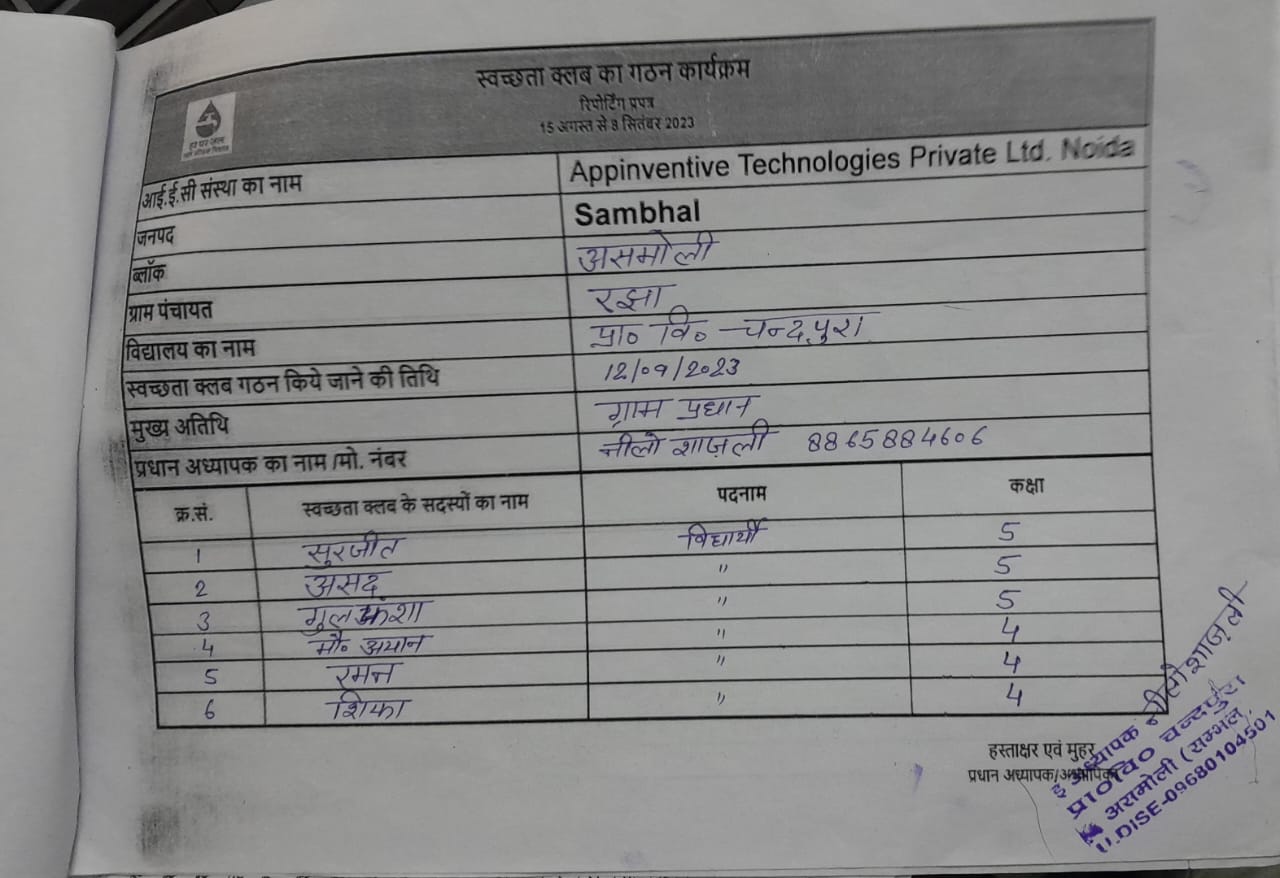 स्वच्छता क्लब का गठन कार्यक्रम
रिपोर्टिंग प्रपत्र
15 अगस्त से 8 सितंबर 2023
हर घर जल
आई.ई.सी संस्था का नाम Appinventive Technologies Private Ltd. Noida
जनपद Sambhal
ब्लॉक असमोली
ग्राम पंचायत रझा
विद्यालय का नाम प्रा० वि० चन्दपुरा
स्वच्छता क्लब गठन किये जाने की तिथि 12/09/2023
मुख्य अतिथि ग्राम प्रधान
प्रधान अध्यापक का नाम /मो. नंबर नीलो शाज़ली 8865884606
क्र.सं. स्वच्छता क्लब के सदस्यों का नाम पदनाम कक्षा
1 सुरजीत विद्यार्थी 5
2 असद " 5
3 गुलफंशा " 5
4 मौ० अयान " 4
5 रमन " 4
6 शिफा " 4
हस्ताक्षर एवं मुहर
प्रधान अध्यापक/अध्यापिका
नीलो शाज़ली
इ० अध्यापक
प्रा०वि० चन्दपुरा
असमोली (सम्भल)
U.DISE-09680104501